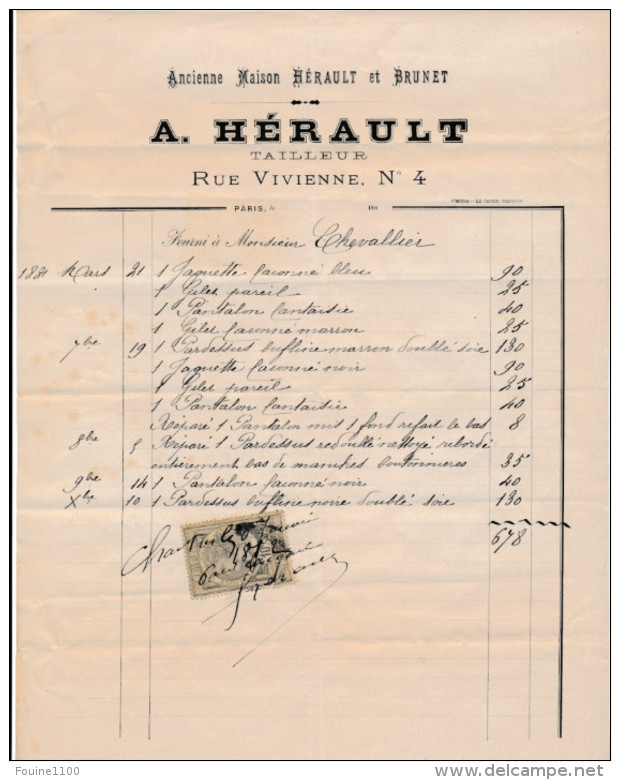 Ancienne Maison HÉRAULT et BRUNET
A. HÉRAULT
TAILLEUR
RUE VIVIENNE, N° 4
PARIS, le 188
Fourni à Monsieur Chevallier
1881 Mars 21 1 Jaquette façonné bleu 90
1 Gilet pareil 25
1 Pantalon fantaisie 40
1 Gilet façonné marron 25
7bre 19 1 Pardessus marron doublé soie 130
1 Jaquette façonné noir 90
1 Gilet pareil 25
1 Pantalon fantaisie 40
Réparé 1 Pantalon mis 1 fond refait le bas 8
8bre 5 Réparé 1 Pardessus redoublé nettoyé rebordé
entièrement bas de manches boutonnières 35
9bre 14 1 Pantalon façonné noir 40
Xbre 10 1 Pardessus noire doublé soie 130
678
Pour acquit
Fouine1100
delcampe.net